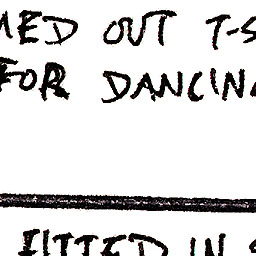 MED OUT T-S
FOR DANCING
FITTED IN S